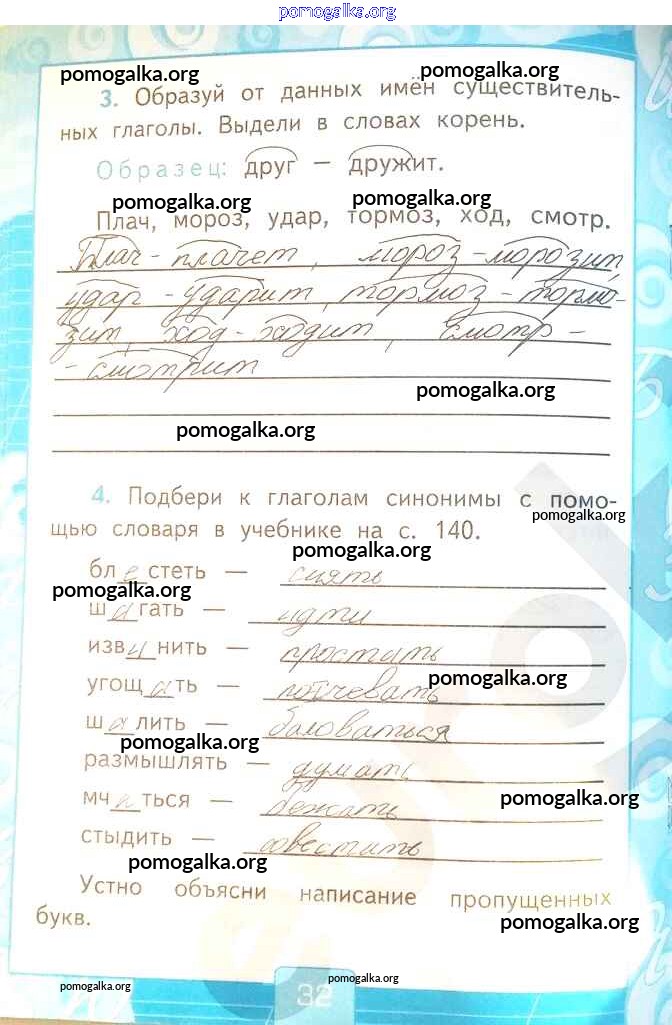 pomogalka.org
pomogalka.org pomogalka.org
3. Образуй от данных имён существитель-
ных глаголы. Выдели в словах корень.
Образец: друг — дружит.
pomogalka.org pomogalka.org
Плач, мороз, удар, тормоз, ход, смотр.
Плач - плачет, мороз - морозит,
удар - ударит, тормоз - тормо-
зит, ход - ходит, смотр -
- смотрит
pomogalka.org
pomogalka.org
4. Подбери к глаголам синонимы с помо-
pomogalka.org
щью словаря в учебнике на с. 140.
pomogalka.org
бл е стеть — сиять
pomogalka.org
ш а гать — идти
изв и нить — простить
pomogalka.org
угощ а ть — потчевать
ш а лить — баловаться
pomogalka.org
размышлять — думать
мч а ться — бежать
pomogalka.org
стыдить — совестить
pomogalka.org
Устно объясни написание пропущенных
букв.
pomogalka.org
pomogalka.org pomogalka.org
32